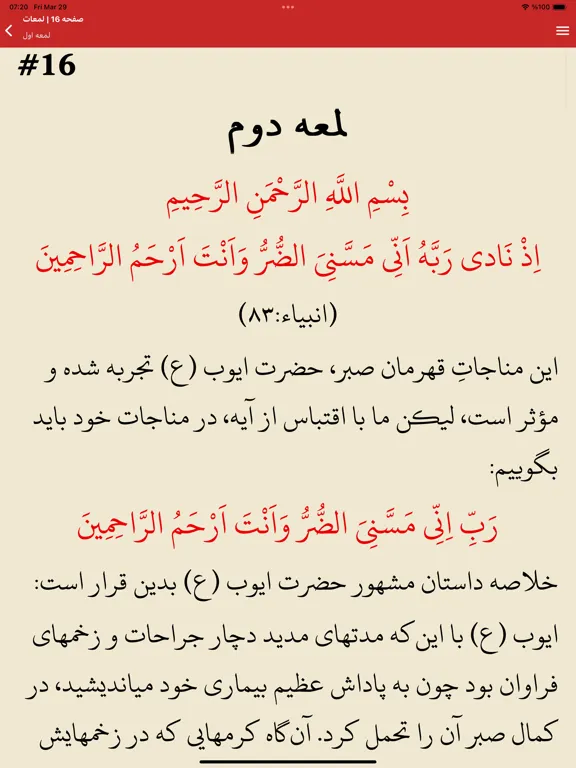 07:20 Fri Mar 29
%100
صفحه 16 | لمعات
لمعه اول
#16
لمعه دوم
بِسْمِ اللَّهِ الرَّحْمَنِ الرَّحِيمِ
اِذْ نَادى رَبَّهُ اَنِّى مَسَّنِىَ الضُّرُّ وَاَنْتَ اَرْحَمُ الرَّاحِمِينَ
(انبیاء:۸۳)
این مناجاتِ قهرمان صبر، حضرت ایوب (ع) تجربه شده و
مؤثر است، لیکن ما با اقتباس از آیه، در مناجات خود باید
بگوییم:
رَبِّ اِنِّى مَسَّنِىَ الضُّرُّ وَاَنْتَ اَرْحَمُ الرَّاحِمِينَ
خلاصه داستان مشهور حضرت ایوب (ع) بدین قرار است:
ایوب (ع) با این‌که مدتهای مدید دچار جراحات و زخمهای
فراوان بود چون به پاداش عظیم بیماری خود میاندیشید، در
کمال صبر آن را تحمل کرد. آن‌گاه کرمهایی که در زخمهایش